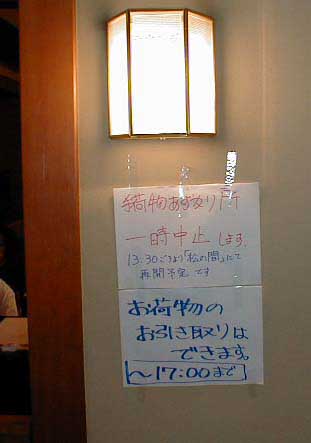 荷物あずかり所
一時中止します。
13:30ごろより「松の間」にて
再開予定です
お荷物の
お引き取りは
できます。
～17:00まで